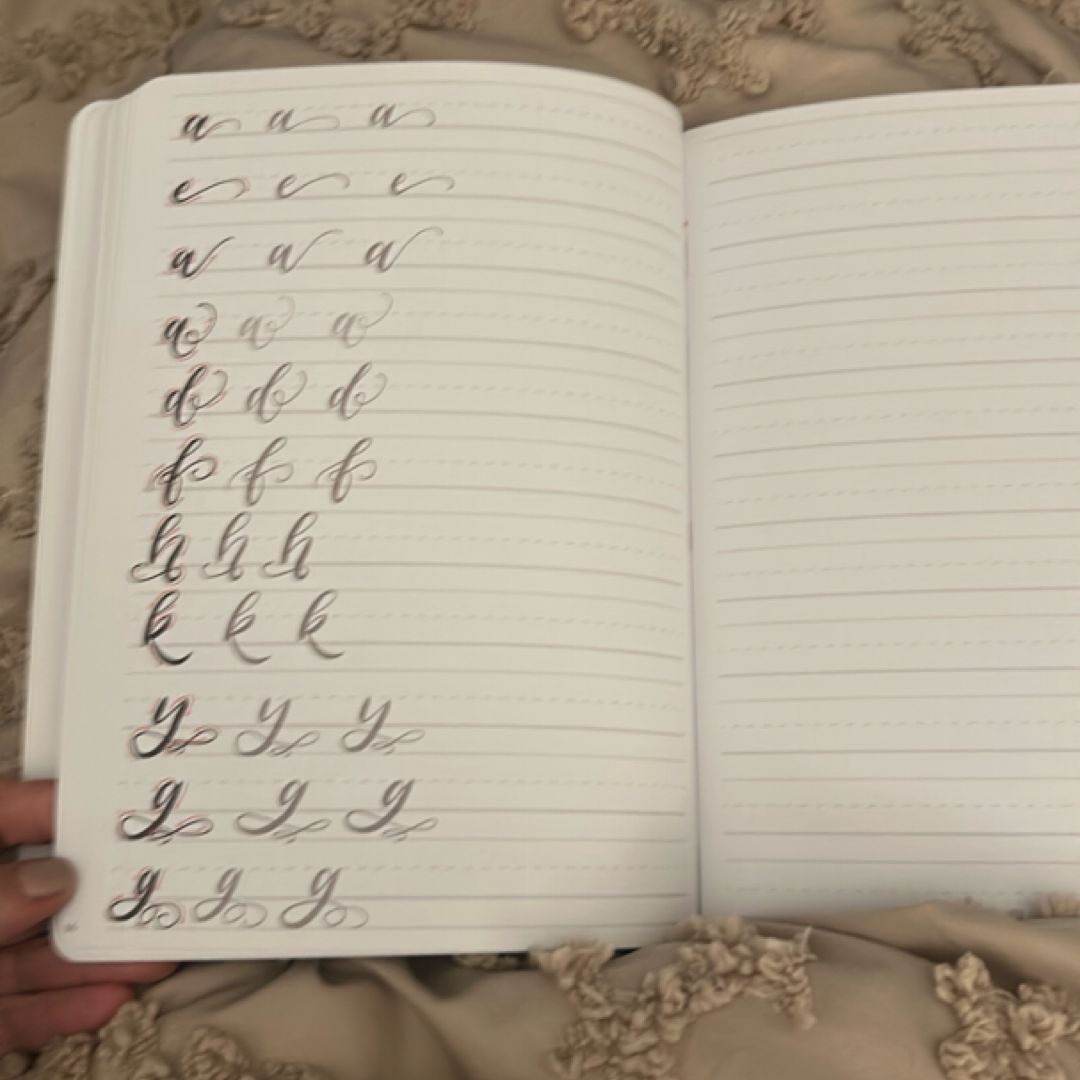 a a a
e e e
a a a
a a a
d d d
f f f
h h h
k k k
y y y
g g g
g g g